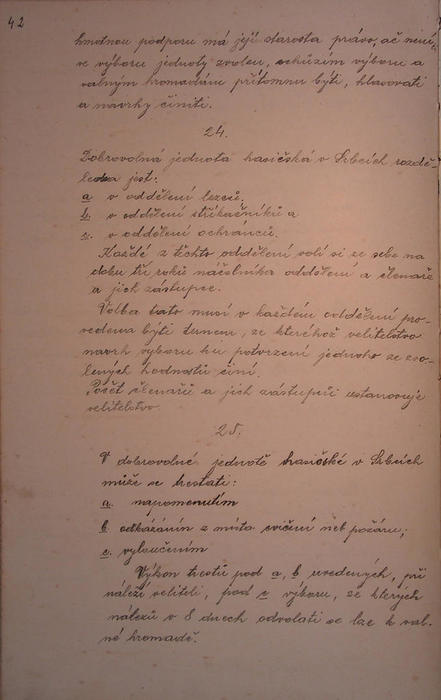 42
hmotnou podporu má její starosta právo, ač není
ve výboru jednoty zvolen, schůzím výboru a
valným hromadám přítomnu býti, hlasovati
a návrhy činiti.
24.
Dobrovolná jednota hasičská v Srbcích rozdě-
lena jest:
a v oddělení lezců,
b. v oddělení stříkačníků a
c. v oddělení ochránců.
Každé z těchto oddělení volí si ze sebe na
dobu tří roků náčelníka oddělení a členaře
a jich zástupce.
Volba tato musí v každém oddělení pro-
vedena býti ternem, ze kteréhož velitelstvo
návrh výboru ku potvrzení jednoho ze zvo-
lených hodnostů činí.
Počet členařů a jich zástupců ustanovuje
velitelstvo.
25.
V dobrovolné jednotě hasičské v Srbcích
může se trestati:
a. napomenutím
b odkázáním z místa cvičení neb požáru;
c. vyloučením
Výkon trestů pod a, b uvedených, při
náleží veliteli, pod c výboru, ze kterých
nálezů v 8 dnech odvolati se lze k val-
né hromadě.